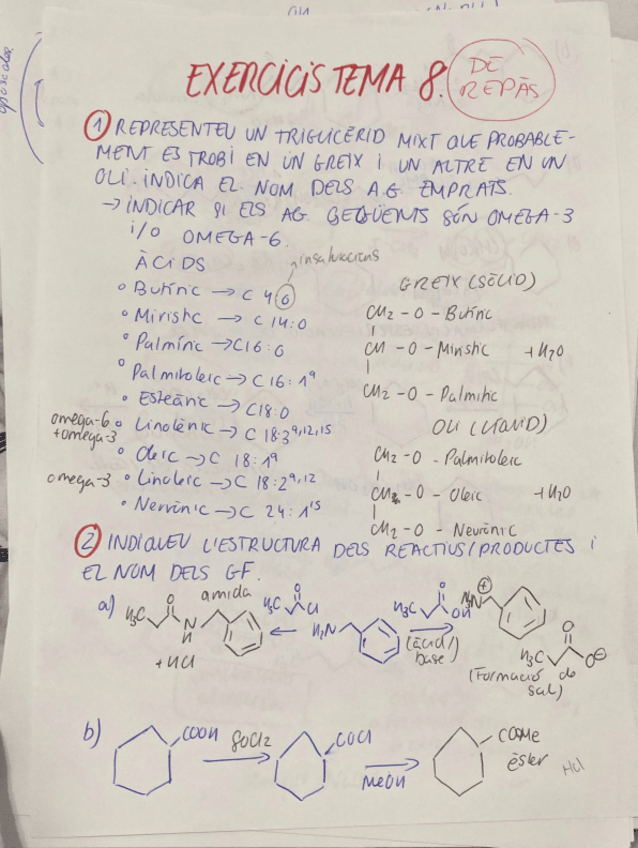 EXERCICIS TEMA 8.
DE
REPÀS
① REPRESENTEU UN TRIGLICÈRID MIXT QUE PROBABLE-
MENT ES TROBI EN UN GREIX I UN ALTRE EN UN
OLI. INDICA EL NOM DELS A.G. EMPRATS.
→ INDICAR SI ELS AG. SEGÜENTS SÓN OMEGA-3
i/o OMEGA-6.
ÀCIDS
insaturacions
• Butíric → C 4:0
• Mirístic → C 14:0
• Palmític → C16:0
• Palmitoleic → C 16:1⁹
• Esteàric → C18:0
omega-6
+omega-3
• Linolènic → C 18:3⁹,¹²,¹⁵
• Oleic → C 18:1⁹
omega-3 • Linoleic → C 18:2⁹,¹²
• Nervònic → C 24:1¹⁵
GREIX (SÒLID)
CH2 - O - Butíric
CH - O - Mirístic +H2O
CH2 - O - Palmític
OLI (LÍQUID)
CH2 - O - Palmitoleic
CH - O - Oleic +H2O
CH2 - O - Neurònic
② INDIQUEU L'ESTRUCTURA DELS REACTIUS/PRODUCTES I
EL NOM DELS GF.
a) H3C O N H amida
+HCl
H3C O Cl
←
H2N
H3C O OH
→
(àcid/
base)
H3N ⊕
H3C O O⊖
(Formació de
sal)
b) COOH SOCl2 → COCl MeOH → COOMe
èster
HCl